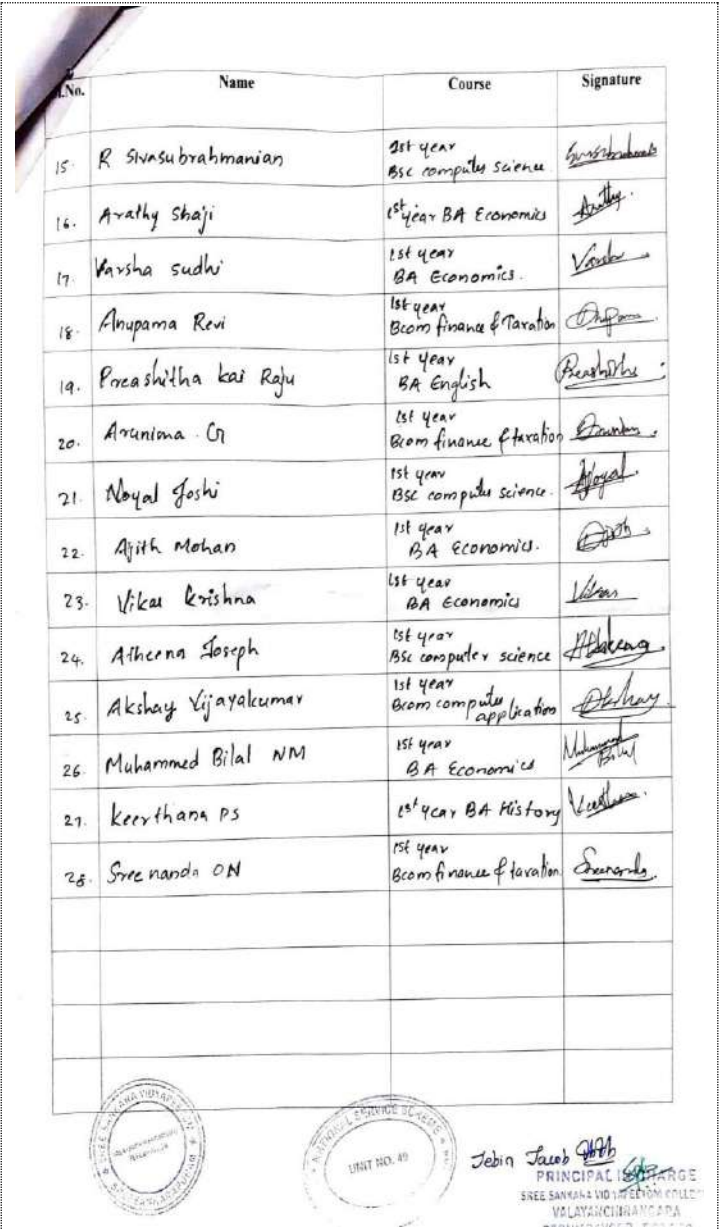 l.No. Name Course Signature
15. R Sivasubrahmanian 1st year
Bsc computer science
16. Arathy Shaji 1st year BA Economics Arathy.
17. Varsha sudhi 1st year
BA Economics. Varsha
18. Anupama Revi 1st year
Bcom finance & Taxation Anupama
19. Preashitha kai Raju 1st year
BA English Preashitha
20. Arunima . G 1st year
Bcom finance & taxation
21. Noyal Joshi 1st year
BSc computer science. Noyal
22. Ajith Mohan 1st year
BA Economics. Ajith
23. Vikas Krishna 1st year
BA Economics Vikas
24. Atheena Joseph 1st year
BSc computer science
25. Akshay Vijayakumar 1st year
Bcom computer
application Akshay
26. Muhammed Bilal NM 1st year
BA Economics Muhammed
Bilal
27. Keerthana PS 1st year BA History Keerthana
28. Sreenanda ON 1st year
Bcom finance & taxation Sreenanda.
SREE SANKARA VIDYAPEETOM
NATIONAL SERVICE SCHEME
UNIT NO. 49
Jebin Jacob
PRINCIPAL IN CHARGE
SREE SANKARA VIDYAPEETOM COLLE
VALAYANCHIRANGARA